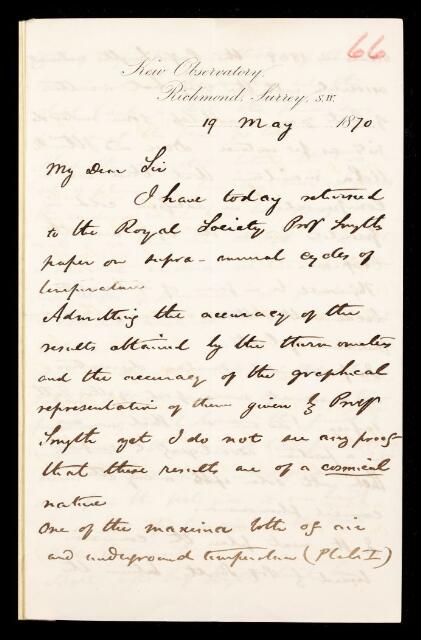 66
Kew Observatory,
Richmond, Surrey, S.W.
19 May 1870
My Dear Sir
I have today returned
to the Royal Society Profr Smyths
paper on supra-annual cycles of
temperature
Admitting the accuracy of the
results attained by the thermometers
and the accuracy of the graphical
representation of them given by Profr
Smyth yet I do not see any proof
that these results are of a cosmical
nature
One of the maxima both of air
and underground temperature (Plate I)